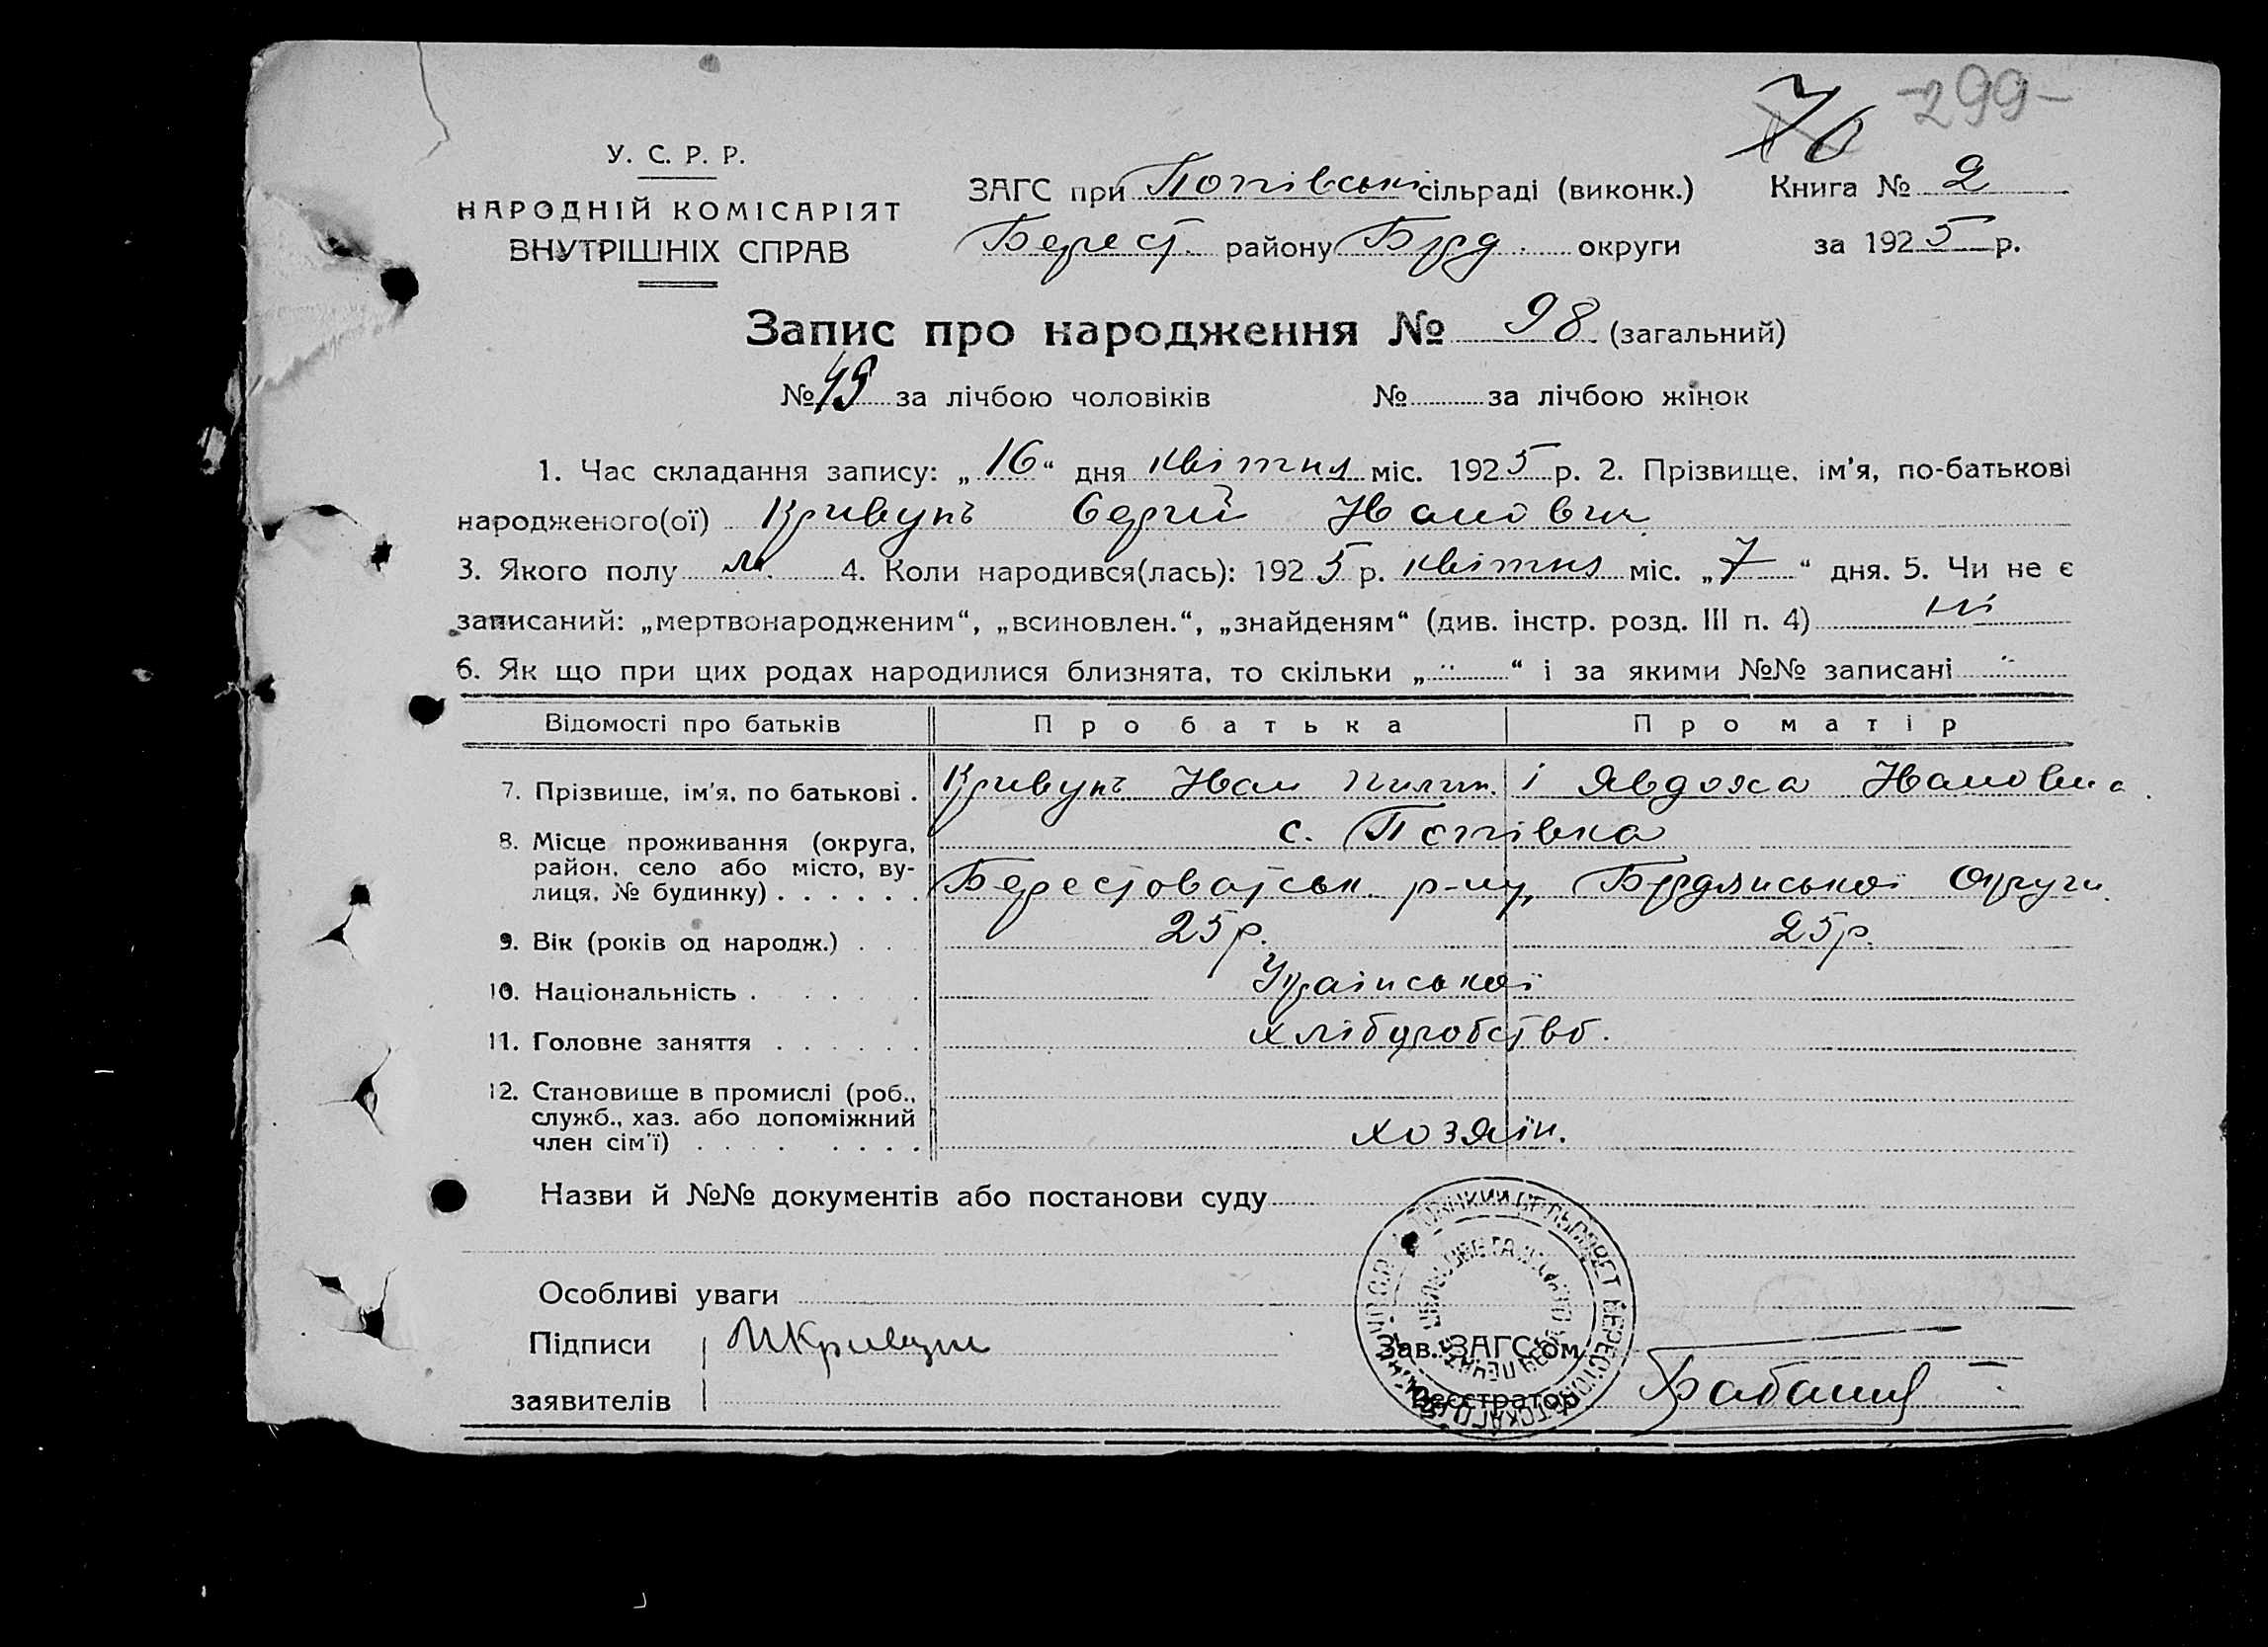 70 -299-
У. С. Р. Р.
НАРОДНІЙ КОМІСАРІЯТ
ВНУТРІШНІХ СПРАВ
ЗАГС при Попівські сільраді (виконк.) Книга № 2
Берест. району Бррд. округи за 1925 р.
Запис про народження № 98 (загальний)
№ 49 за лічбою чоловіків № за лічбою жінок
1. Час складання запису: „16“ дня квітня міс. 1925 р. 2. Прізвище, ім’я, по-батькові
народженого(ої) Кривунъ Сергій Иванович
3. Якого полу м. 4. Коли народився(лась): 1925 р. квітня міс. „7“ дня. 5. Чи не є
записаний: „мертвонародженим“, „всиновлен.“, „знайденям“ (див. інстр. розд. III п. 4) ні
6. Як що при цих родах народилися близнята, то скільки „ “ і за якими №№ записані
Відомості про батьків Про батька Про матір
7. Прізвище, ім’я, по батькові . Кривунъ Иван Пилип. і Явдоха Ивановна.
8. Місце проживання (округа, с. Попівка
район, село або місто, ву-
лиця, № будинку) . . . . . . Берестоватськ. р-ну, Бердянської Округи.
9. Вік (років од народж.) . . . 25 р. 25 р.
10. Національність . . . . . . Української
11. Головне заняття . . . . . . хліборобство.
12. Становище в промислі (роб.,
служб., хаз. або допоміжний
член сім’ї) . . . . . . . . хозяїн.
Назви й №№ документів або постанови суду
Особливі уваги
Підписи ИКривун Зав. ЗАГС’ом
заявителів Реєстратор Бабаш